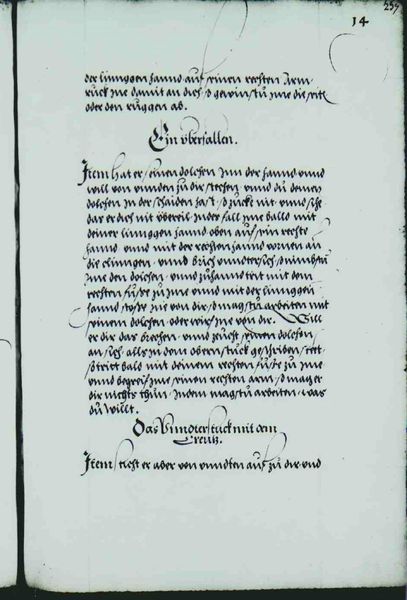 257
14
der linnggen hannd auf seinen rechten Arm
ruck ine damit an dich so gewinstu ime die seit
oder den ruggen ab.
Ein überfallen.
Item hat er seinen dolchen inn der hannd unnd
will von unnden zu dir stechen unnd du deinen
dolchen in der schaiden hast, so zuck nit unnd sich
das er dich nit übereil Inder fall ime balld mit
deiner linnggen hannd oben auf sein rechte
hannd unnd mit der rechten hannd vornen an
die clinngen unnd brich undersich so nimbstu
ime den dolchen unnd zuhannd trit mit dem
rechten fuss zu ime unnd mit der linnggen
hannd stoss ine von dir so magstu arbeiten mit
seinem dolchen oder wirf ine von dir. Will
er dir das brechen unnd zeucht seinen dolchen
an sich alls in dem obern stuck geschriben stett
so trit bald mit deinem rechten fuss zu ime
unnd begreif ime seinen rechten arm so mag er
dir nichts thun Indem magstu arbeiten was
du willt.
Das Unnderstuck mit dem
Creutz.
Item sticht er aber von unndten auf zu dir unnd